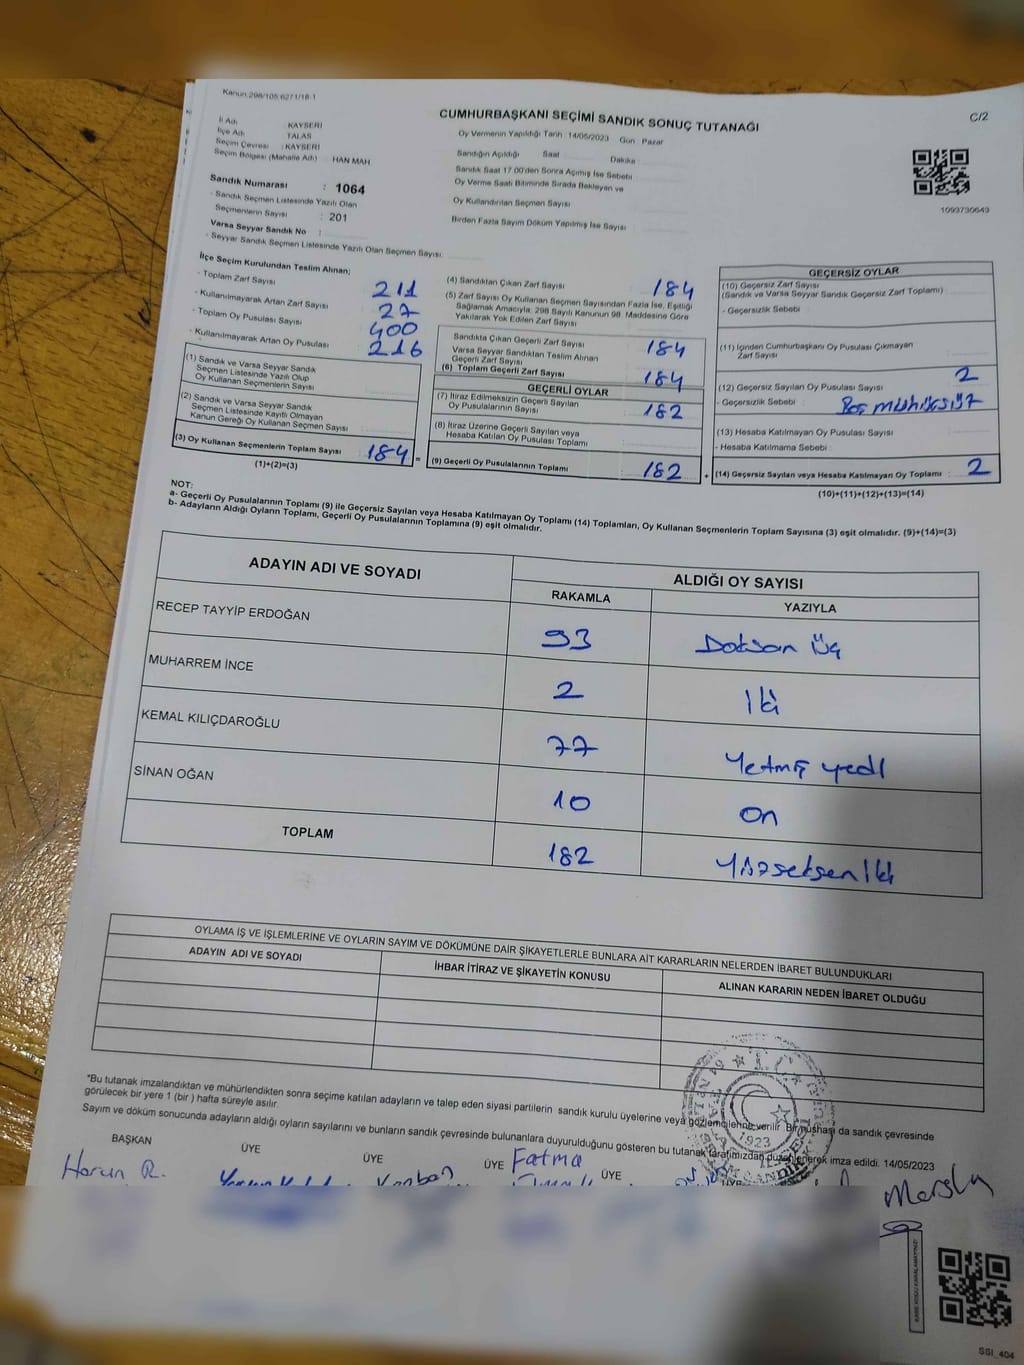 Kanun:298/105;6271/18-1
C/2
CUMHURBAŞKANI SEÇİMİ SANDIK SONUÇ TUTANAĞI
İl Adı : KAYSERİ
İlçe Adı : TALAS
Seçim Çevresi : KAYSERİ
Seçim Bölgesi (Mahalle Adı) : HAN MAH
Sandık Numarası : 1064
- Sandık Seçmen Listesinde Yazılı Olan
Seçmenlerin Sayısı : 201
Varsa Seyyar Sandık No :
- Seyyar Sandık Seçmen Listesinde Yazılı Olan Seçmen Sayısı:
Oy Vermenin Yapıldığı Tarih : 14/05/2023 Gün : Pazar
Sandığın Açıldığı Saat Dakika
Sandık Saat 17.00'den Sonra Açılmış İse Sebebi
Oy Verme Saati Bitiminde Sırada Bekleyen ve
Oy Kullandırılan Seçmen Sayısı
Birden Fazla Sayım Döküm Yapılmış İse Sayısı :
1093730643
İlçe Seçim Kurulundan Teslim Alınan;
- Toplam Zarf Sayısı 211
- Kullanılmayarak Artan Zarf Sayısı 27
- Toplam Oy Pusulası Sayısı 400
- Kullanılmayarak Artan Oy Pusulası 216
(1) Sandık ve Varsa Seyyar Sandık
Seçmen Listesinde Yazılı Olup
Oy Kullanan Seçmenlerin Sayısı
(2) Sandık ve Varsa Seyyar Sandık
Seçmen Listesinde Kayıtlı Olmayan
Kanun Gereği Oy Kullanan Seçmen Sayısı
(3) Oy Kullanan Seçmenlerin Toplam Sayısı 184 =
(1)+(2)=(3)
(4) Sandıktan Çıkan Zarf Sayısı 184
(5) Zarf Sayısı Oy Kullanan Seçmen Sayısından Fazla İse, Eşitliği
Sağlamak Amacıyla, 298 Sayılı Kanunun 98. Maddesine Göre
Yakılarak Yok Edilen Zarf Sayısı
Sandıkta Çıkan Geçerli Zarf Sayısı 184
Varsa Seyyar Sandıktan Teslim Alınan
Geçerli Zarf Sayısı
(6) Toplam Geçerli Zarf Sayısı 184
GEÇERLİ OYLAR
(7) İtiraz Edilmeksizin Geçerli Sayılan
Oy Pusulalarının Sayısı 182
(8) İtiraz Üzerine Geçerli Sayılan veya
Hesaba Katılan Oy Pusulası Toplamı
(9) Geçerli Oy Pusulalarının Toplamı 182 +
GEÇERSİZ OYLAR
(10) Geçersiz Zarf Sayısı
(Sandık ve Varsa Seyyar Sandık Geçersiz Zarf Toplamı)
- Geçersizlik Sebebi
(11) İçinden Cumhurbaşkanı Oy Pusulası Çıkmayan
Zarf Sayısı
(12) Geçersiz Sayılan Oy Pusulası Sayısı 2
- Geçersizlik Sebebi : Boş mühürsüz
(13) Hesaba Katılmayan Oy Pusulası Sayısı
- Hesaba Katılmama Sebebi :
(14) Geçersiz Sayılan veya Hesaba Katılmayan Oy Toplamı : 2
(10)+(11)+(12)+(13)=(14)
NOT:
a- Geçerli Oy Pusulalarının Toplamı (9) ile Geçersiz Sayılan veya Hesaba Katılmayan Oy Toplamı (14) Toplamları, Oy Kullanan Seçmenlerin Toplam Sayısına (3) eşit olmalıdır. (9)+(14)=(3)
b- Adayların Aldığı Oyların Toplamı, Geçerli Oy Pusulalarının Toplamına (9) eşit olmalıdır.
ADAYIN ADI VE SOYADI ALDIĞI OY SAYISI
RAKAMLA YAZIYLA
RECEP TAYYİP ERDOĞAN 93 Doksan üç
MUHARREM İNCE 2 İki
KEMAL KILIÇDAROĞLU 77 Yetmiş yedi
SİNAN OĞAN 10 on
TOPLAM 182 Yüzseksen iki
OYLAMA İŞ VE İŞLEMLERİNE VE OYLARIN SAYIM VE DÖKÜMÜNE DAİR ŞİKAYETLERLE BUNLARA AİT KARARLARIN NELERDEN İBARET BULUNDUKLARI
ADAYIN ADI VE SOYADI İHBAR İTİRAZ VE ŞİKAYETİN KONUSU ALINAN KARARIN NEDEN İBARET OLDUĞU
"Bu tutanak imzalandıktan ve mühürlendikten sonra seçime katılan adayların ve talep eden siyasi partilerin sandık kurulu üyelerine veya gözlemcilerine verilir. Bir nüshası da sandık çevresinde
görülecek bir yere 1 (bir ) hafta süreyle asılır.
Sayım ve döküm sonucunda adayların aldığı oyların sayılarını ve bunların sandık çevresinde bulunanlara duyurulduğunu gösteren bu tutanak tarafımızdan düzenlenerek imza edildi. 14/05/2023
BAŞKAN ÜYE ÜYE ÜYE ÜYE ÜYE
Harun R. Fatma
1923
SSI_404